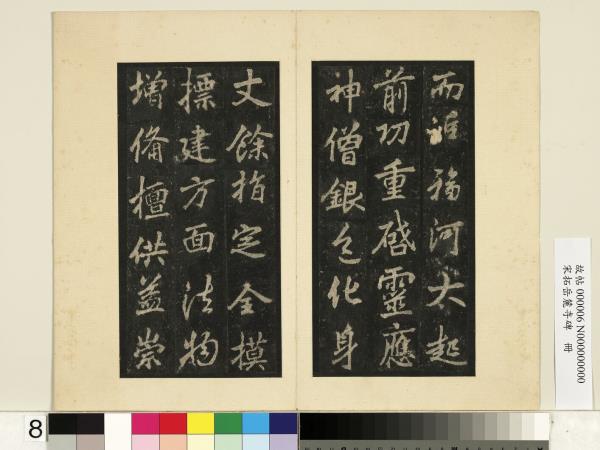 而誰福河大起
前功重啓靈應
神僧銀色化身
丈餘指定全摸
標建方面法物
增備檀供益崇
故帖 000006 N000000000
宋拓岳麓寺碑 冊
8